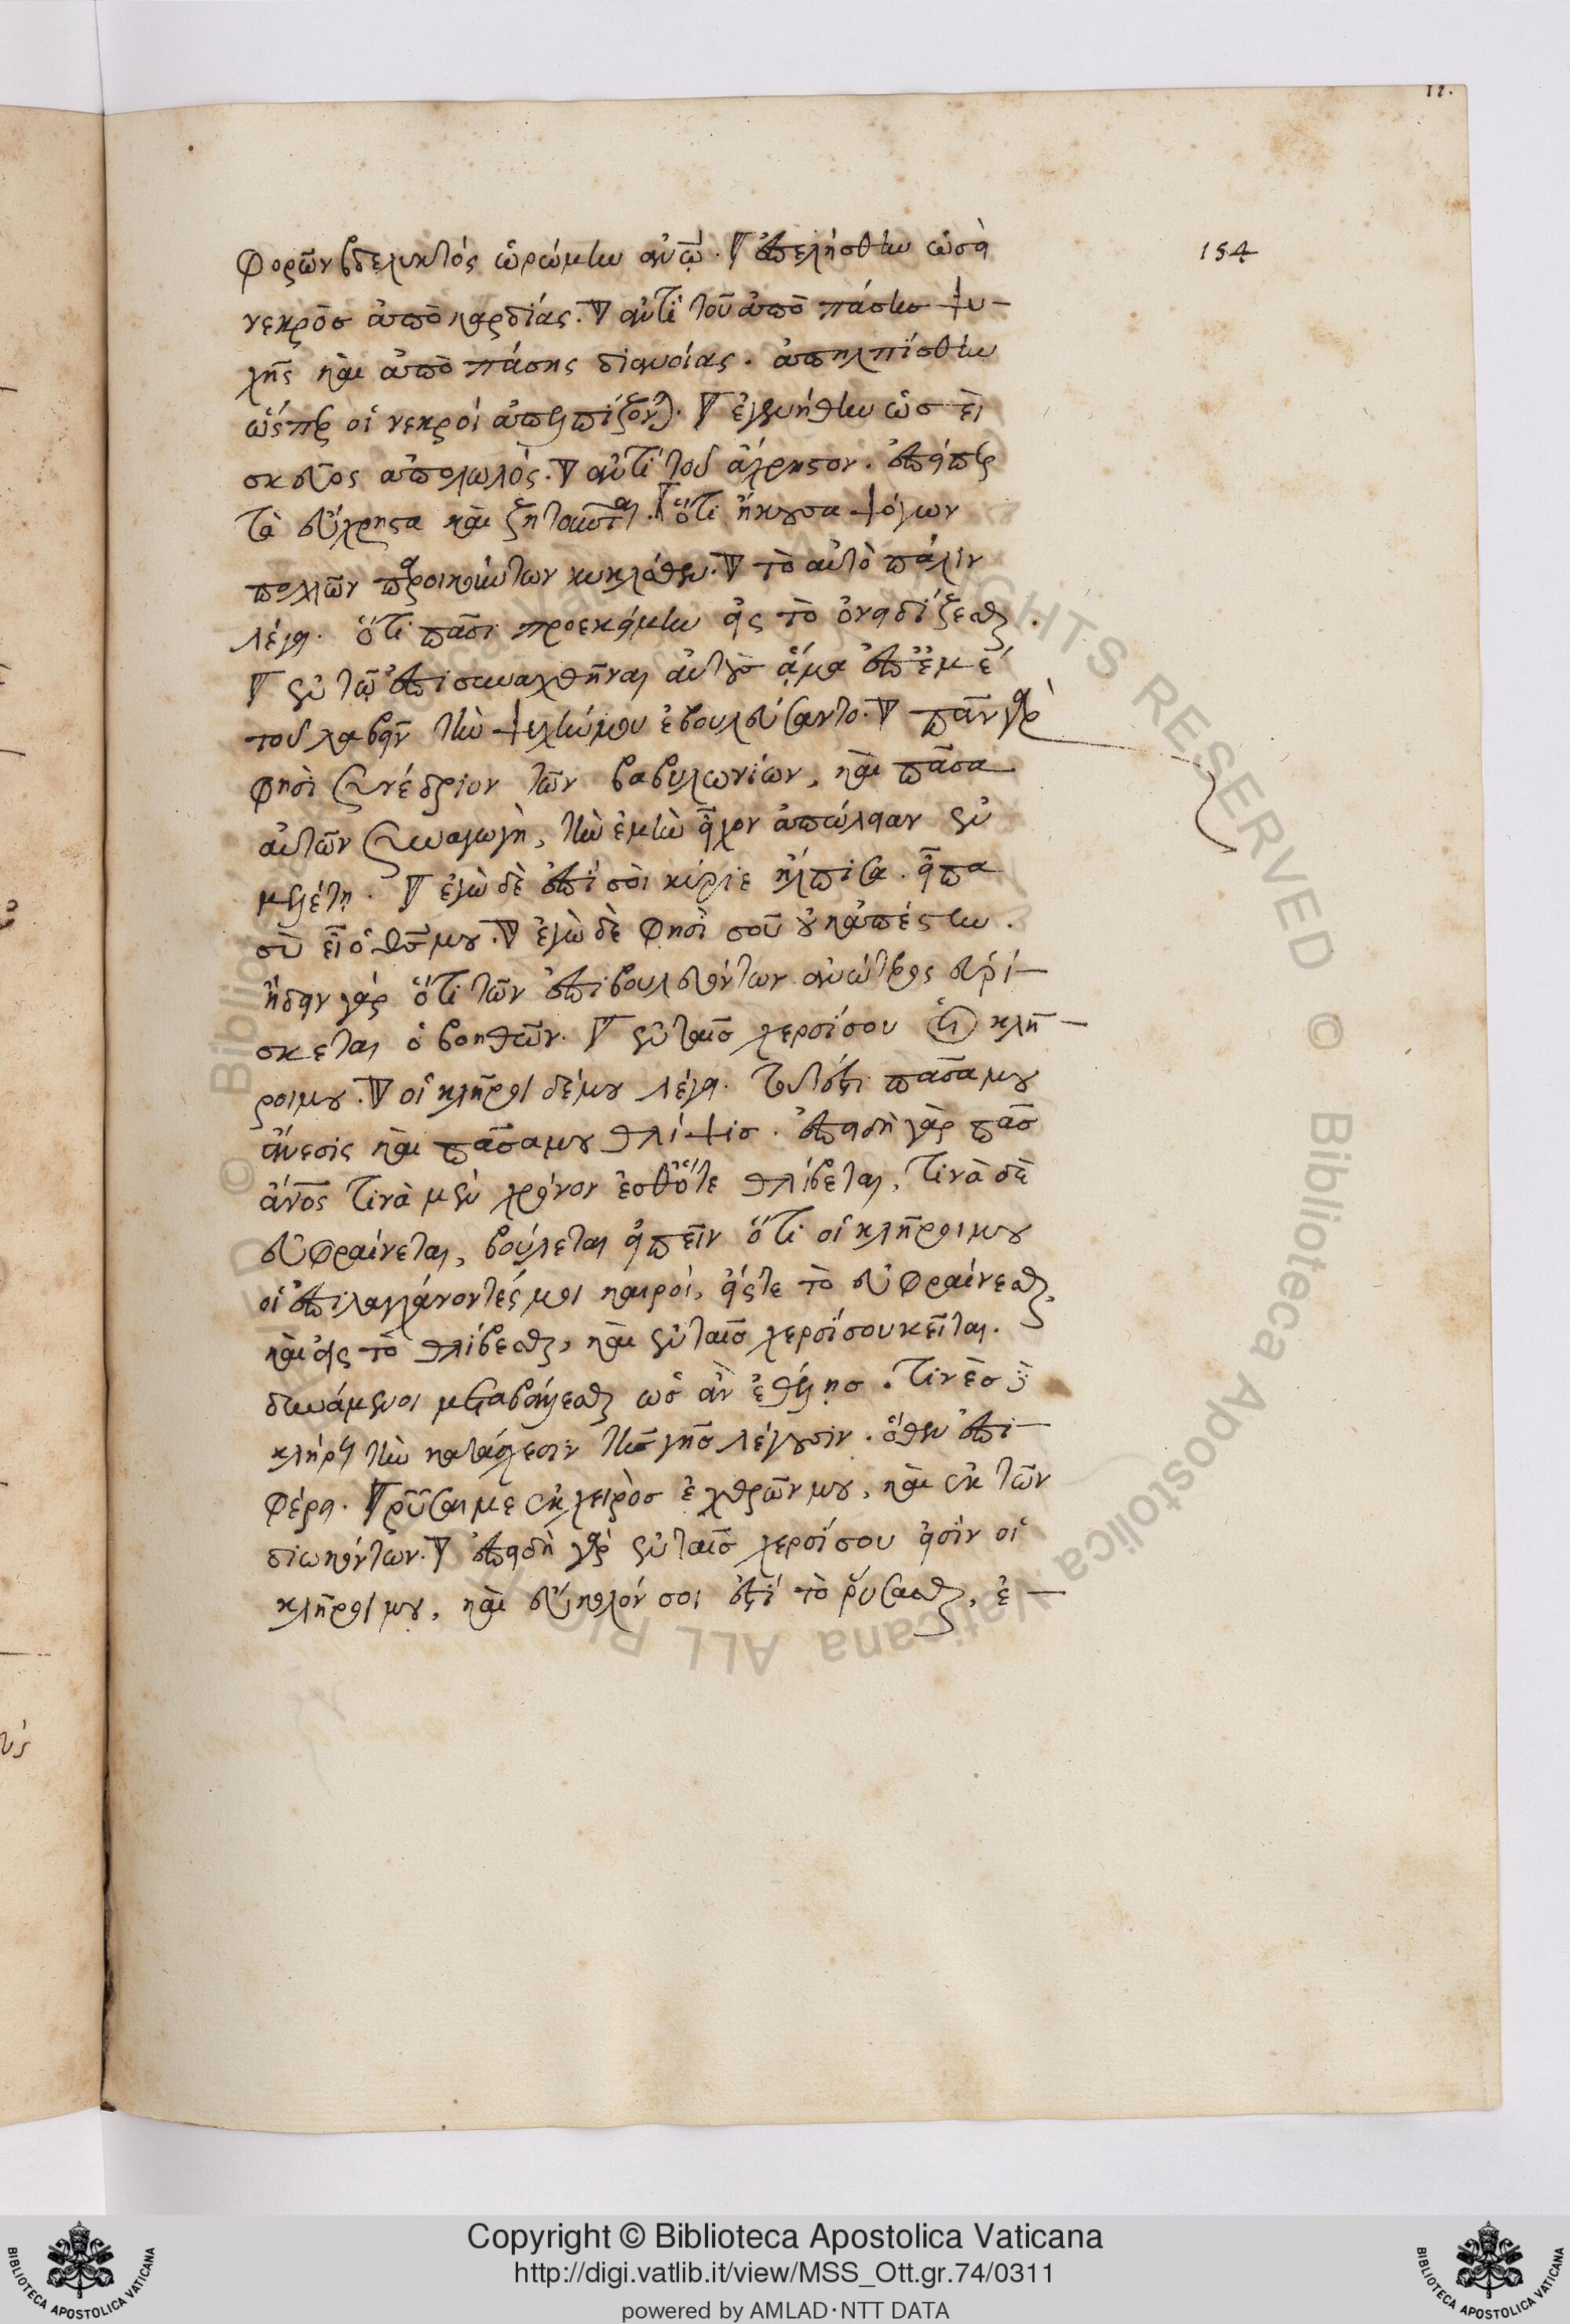 12.
154
φορῶν βδελυκτός ὡρώμην αὐτῷ. ἐπελήσθην ὡσεὶ
νεκρὸσ ἀπὸ καρδίας. ἀντὶ τοῦ ἀπὸ πάσησ ψυ-
χῆς καὶ ἀπὸ πάσης διανοίας. ἀπηλπίσθην
ὥσπερ οἱ νεκροί ἀπελπίζονται. ἐγενήθην ὡσ εὶ
σκεῦος ἀπολωλός. ἀντὶ τοῦ ἄχρηστον. ἐπείπερ
τὰ εὔχρηστα καὶ ζητεῖσται. ὅτι ἤκουσα ψόγων
πολλῶν παροικούντων κυκλόθεν. τὸ αὐτὸ πάλιν
λέγει. ὅτι πᾶσι προεκείμην εἰς τὸ ὀνειδίζεσθαι.
ἐν τῶ ἐπισυναχθῆναι αὐτοὺσ ἅμα ἐπ' ἐμέ
τοῦ λαβεῖν τὴν ψυχήν μου ἐβουλεύσαντο. πᾶν γὰρ
φησὶ συνέδριον τῶν βαβυλωνίων, καὶ πᾶσα
αὐτῶν συναγωγὴ, τὴν ἐμὴν εἶχον ἀπώλειαν ἐν
μελέτῃ. ἐγὼ δὲ ἐπί σὸι κύριε ἤλπισα. εἶπα
σὺ εἶ ὁ θσ μου. ἐγὼ δὲ φησὶ σοῦ οὐκ ἀπέστην.
ἤδειν γάρ ὅτι τῶν ἐπιβουλευόντων ἀνώτερος εὑρί-
σκεται ὁ βοηθῶν. ἐν ταῖσ χερσί σου οἱ κλῆ-
ροι μου. οἱ κλῆροι δέ μου λέγει. τουτέστι πᾶσα μου
ἄνεσις καὶ πᾶσα μου θλίψισ. ἐπειδὴ γὰρ πᾶσ
ἄνος τινὰ μὲν χρόνον ἐσθότε θλίβεται, τινὰ δὲ
εὐφραίνεται, βούλεται εἰπεῖν ὅτι οἱ κλῆροι μου
οἱ ἐπιλαγχάνοντές μοι καιροί, εἴς τε τὸ εὐφραίνεσθαι,
καὶ εἰς τὸ θλίβεσθαι, καὶ ἐν ταῖσ χερσί σου κεῖται.
δυνάμενοι μεταβάλλεσθαι ὡσ ἂν ἐθέλῃσ. τινὲσ δὲ
κλήρους τὴν κατάσχεσιν τῆσ γῆσ λέγουσιν. ὅθεν ἐπι-
φέρει. ῥῦσαι με ἐκ χειρὸσ ἐχθρῶν μου, καὶ ἐκ τῶν
διωκόντων. ἐπειδὴ γὰρ ἐν ταῖσ χερσί σου εἰσὶν οἱ
κλῆροι μου, καὶ εὔκολόν σοι ἐστί τὸ ῥύσασθαι, ἐ-
© Biblioteca Apostolica Vaticana ALL RIGHTS RESERVED
Copyright © Biblioteca Apostolica Vaticana
http://digi.vatlib.it/view/MSS_Ott.gr.74/0311
powered by AMLAD·NTT DATA
BIBLIOTECA APOSTOLICA VATICANA
BIBLIOTECA APOSTOLICA VATICANA